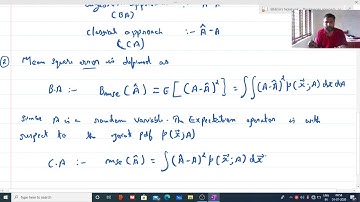 approach :- Â - A
(BA)
classical approach :- Â - A
(CA)
② Mean square error is defined as
B.A :- Bmse(Â) = E[(A-Â)²] = ∫∫(A-Â)² p(x⃗;A) dx⃗ dA
Since A is a random variable. The Expectation operator is with
respect to the joint pdf p(x⃗;A)
C.A :- mse(Â) = ∫(Â-A)² p(x⃗;A) dx⃗